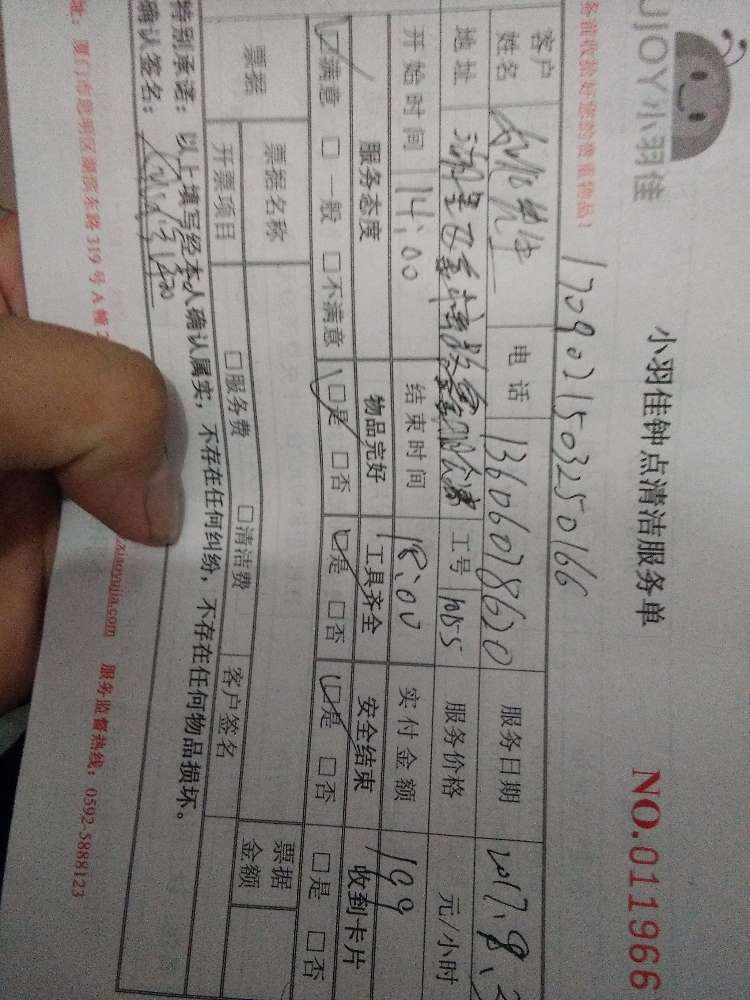 UJOY小羽佳
小羽佳钟点清洁服务单
NO.011966
务前收拾好您的贵重物品！
1709021503250166
客户姓名 先生 电话 13606078620 服务日期 2017.9.
地址 工号 1055 服务价格 元/小时
开始时间 14:00 结束时间 18:00 实付金额 199
服务态度 物品完好 工具齐全 安全结束 收到卡片
☑满意 □一般 □不满意 ☑是 □否 ☑是 □否 ☑是 □否 □是 □否
票据 票据名称 票据金额
开票项目 □服务费 □清洁费 客户签名
特别承诺：以上填写经本人确认属实，不存在任何纠纷，不存在任何物品损坏。
确认签名：
址：厦门市思明区湖滨东路 319 号 A 幢 xiaoyujia.com 服务监督热线：0592-5888123